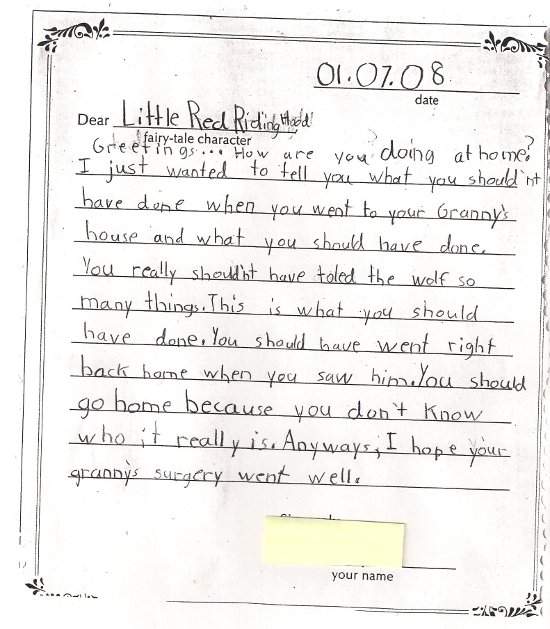 01.07.08
date
Dear Little Red Riding Hood
fairy-tale character
Greetings... How are you doing at home?
I just wanted to tell you what you should'nt
have done when you went to your Granny's
house and what you should have done.
You really should'nt have toled the wolf so
many things. This is what you should
have done. You should have went right
back home when you saw him. You should
go home because you don't know
who it really is. Anyways, I hope your
granny's surgery went well.
your name